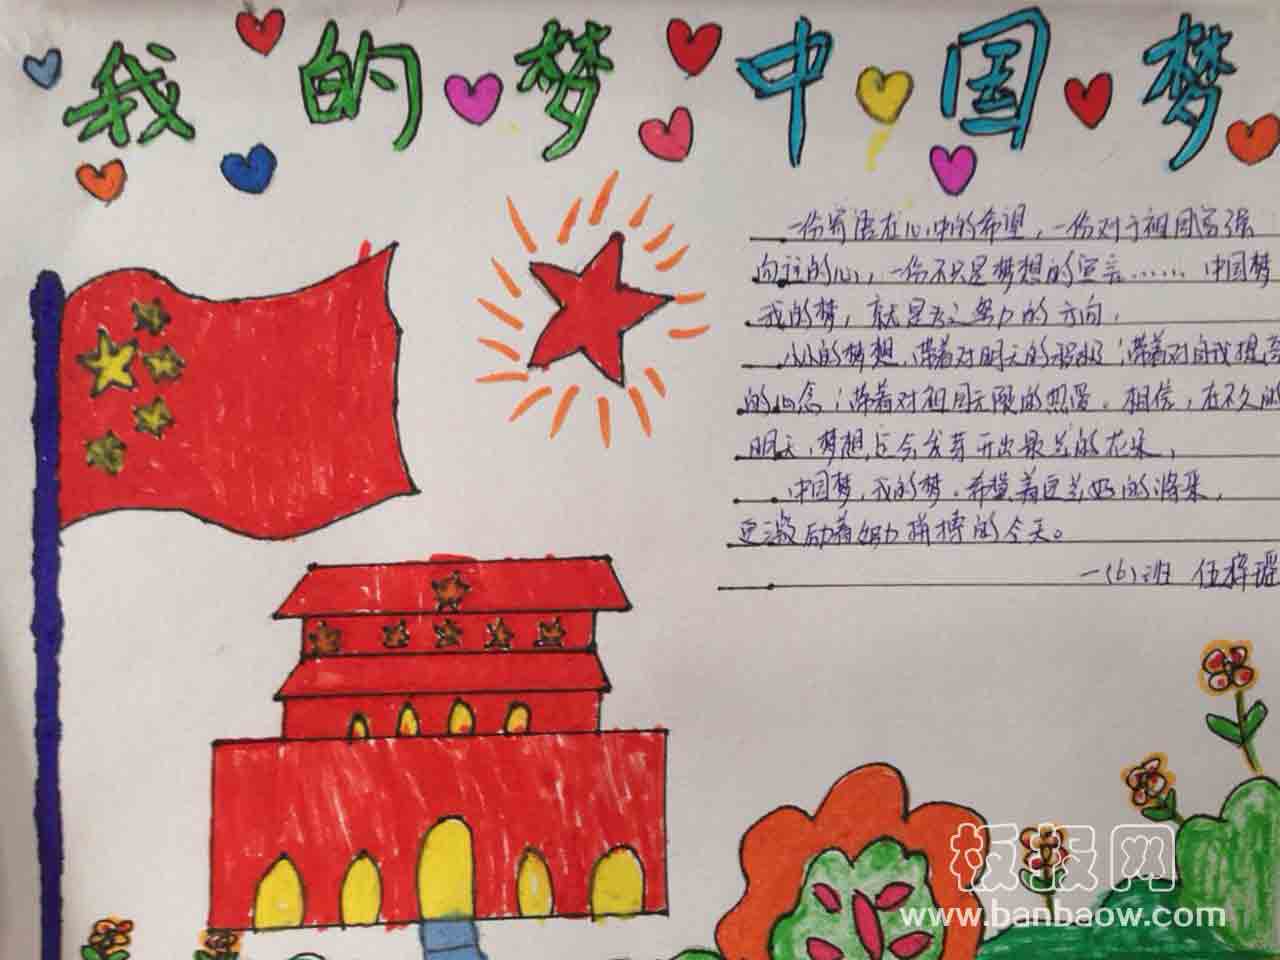 我的梦 中国梦
一份寄语在心中的希望，一份对于祖国富强
向往的心，一份不只是梦想的宣言…… 中国梦
我的梦，就是为之努力的方向，
小小的梦想，带着对明天的祝好；带着对自我提高
的心念；带着对祖国无限的热爱。相信，在不久的
明天，梦想定会发芽开出最美的花朵，
中国梦，我的梦，希望着更美好的将来，
更激励着努力拼搏的今天。
一(6)班 伍梓瑶
板报网
www.banbaow.com